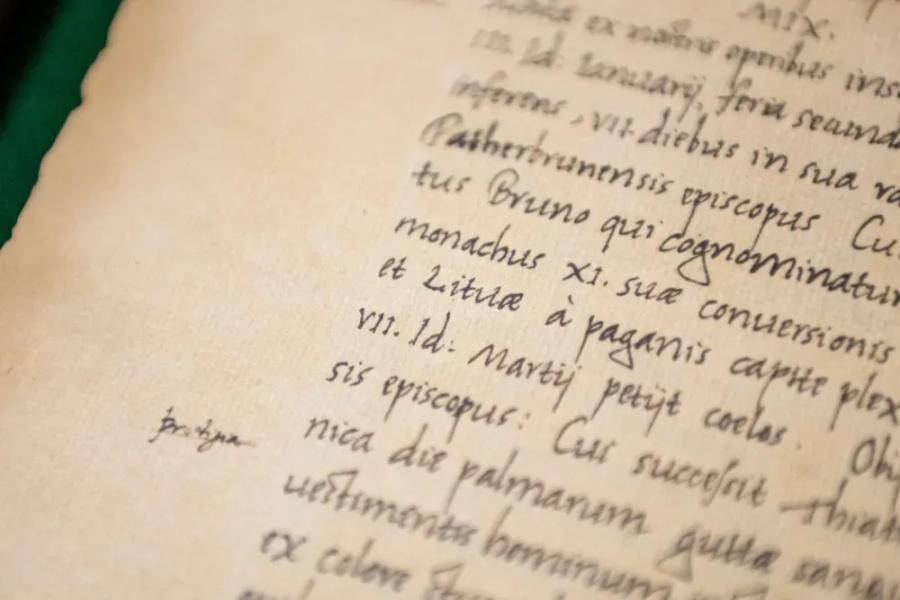 MIX.
ex nostris operibus
III. Id: Ianuarij, feria secunda
inferens, VII. diebus in sua
Patherbrunensis episcopus
tus Bruno qui cognominatur
monachus XI. suæ conuersionis
et Lituæ à paganis capite plex
VII. Id: Martij petijt coelos. Obi
sis episcopus: Cui succeſsit Thiat
nica die palmarum guttæ sangu
uestimentis hominum
ex colore